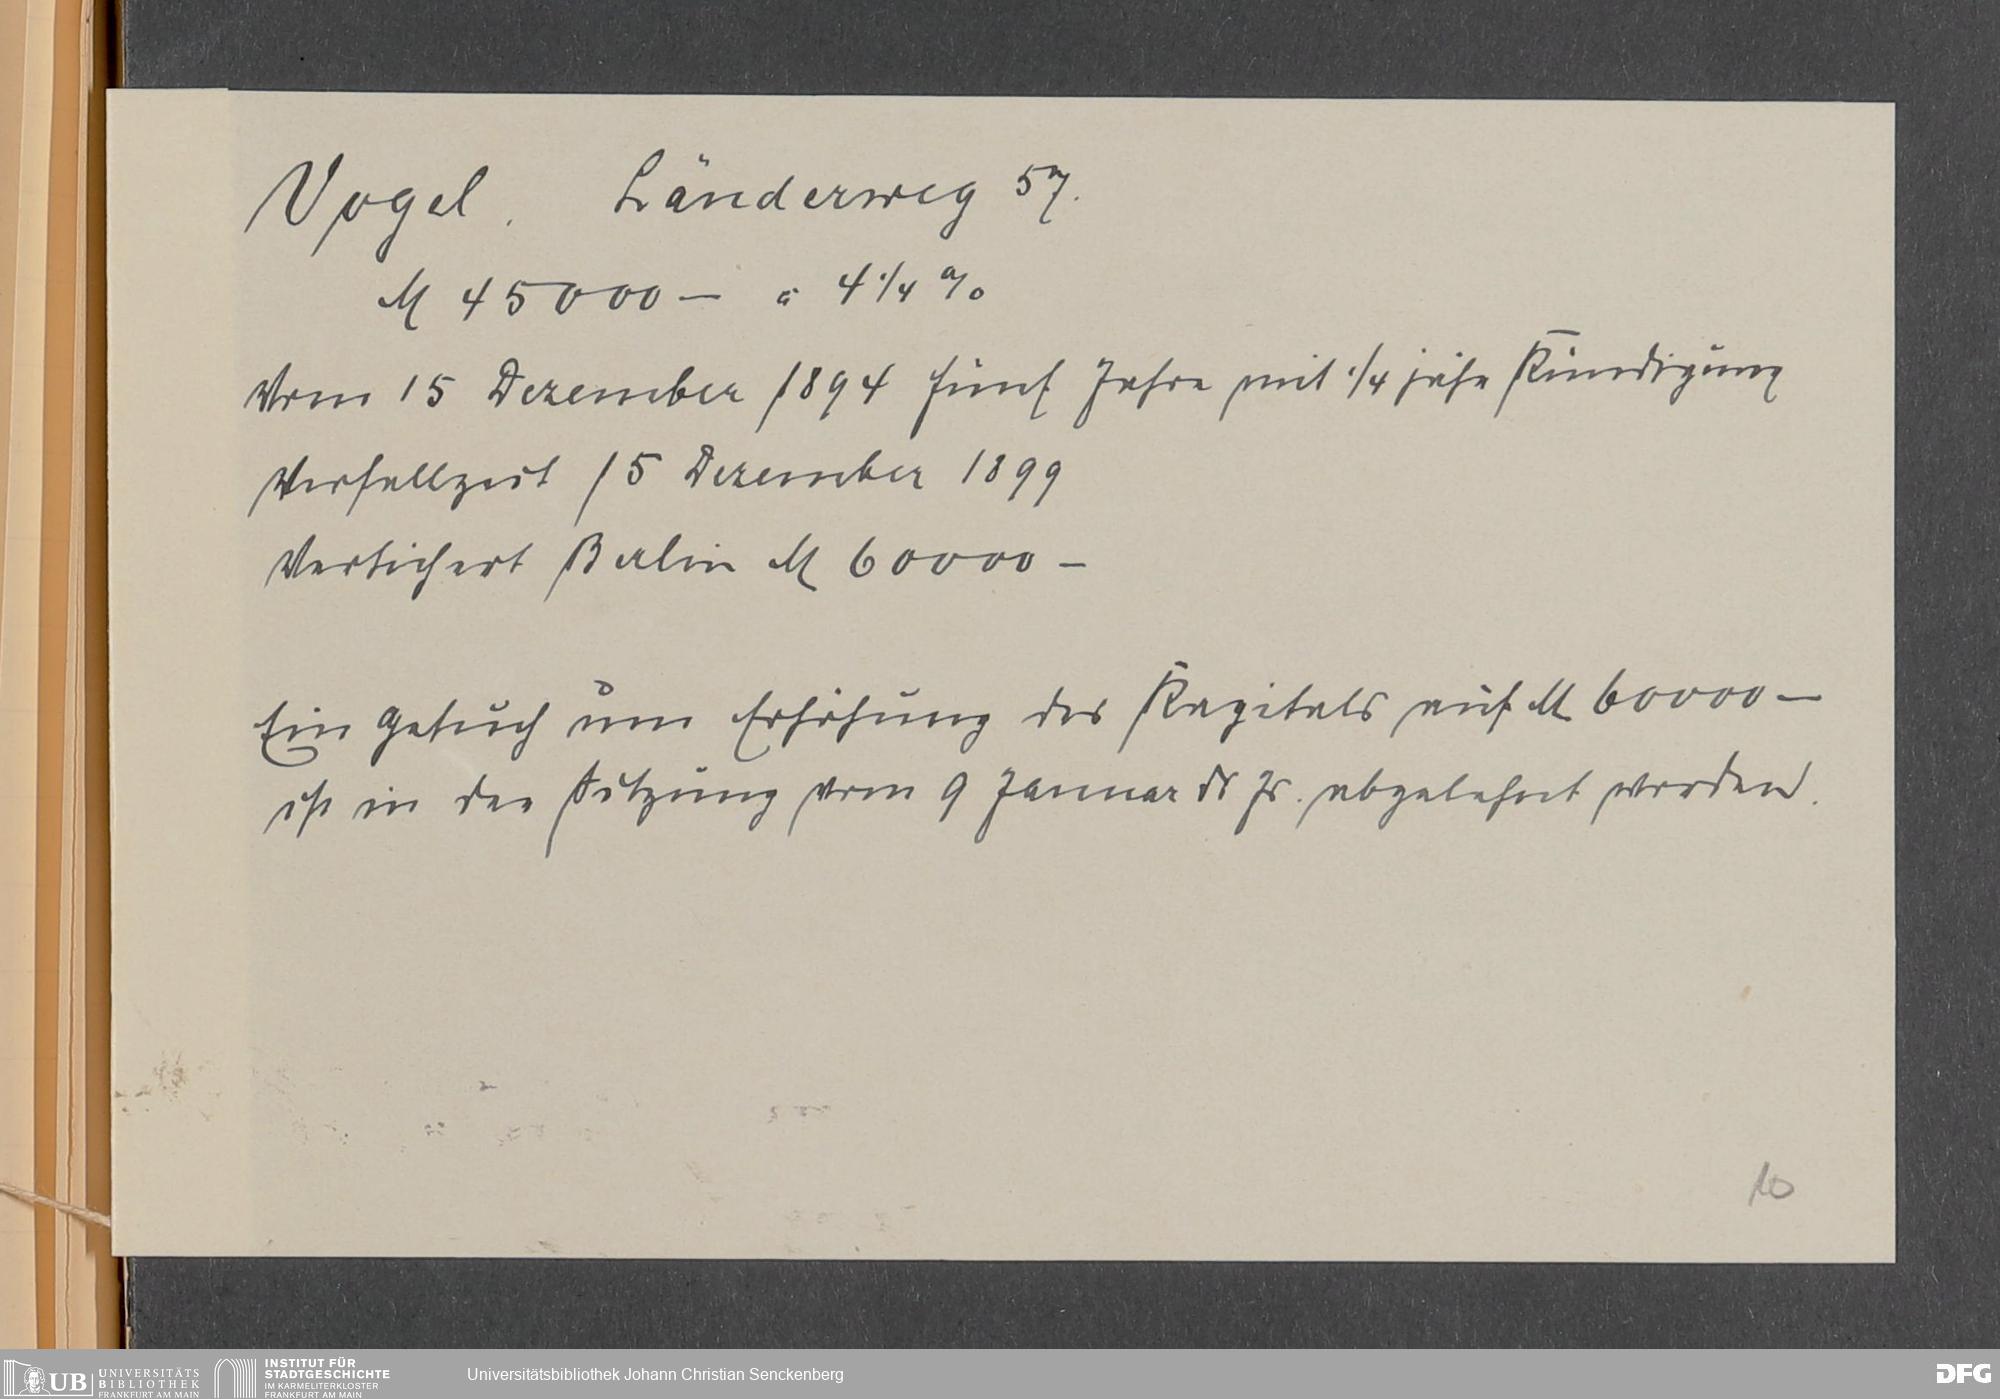 Vogel. Länderweg 57.
M 45000 — à 4 1/4 %
Vom 15 Dezember 1894 fünf Jahre mit 1/4 jähr Kündigung
Verfallzeit 15 Dezember 1899
Versichert Berlin M 60000 —
Ein Gesuch um Erhöhung des Kapitals auf M 60000 —
ist in der Sitzung vom 9 Januar ds Js. abgelehnt worden.
10
UB UNIVERSITÄTS
BIBLIOTHEK
FRANKFURT AM MAIN
INSTITUT FÜR
STADTGESCHICHTE
IM KARMELITERKLOSTER
FRANKFURT AM MAIN
Universitätsbibliothek Johann Christian Senckenberg
DFG